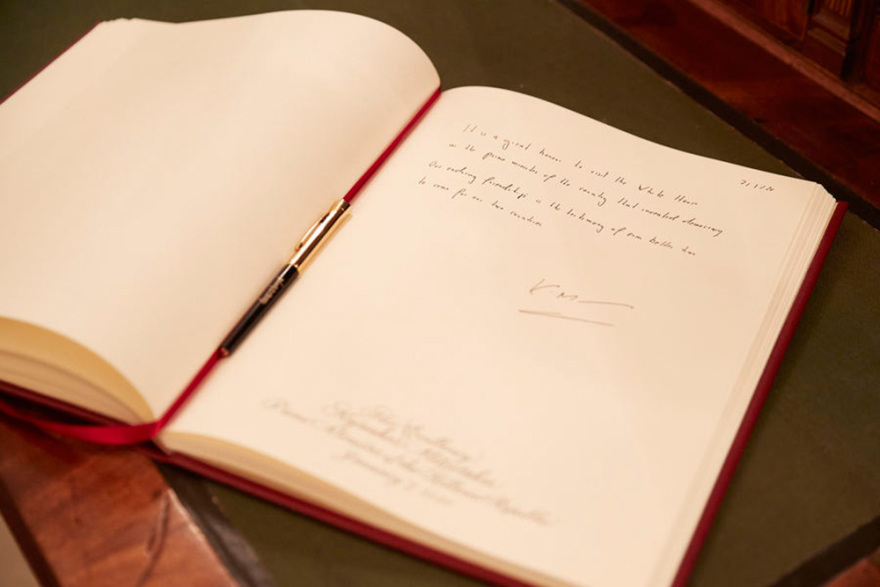 It is a great honor to visit the White House
7/1/20
as the prime minister of the country that invented democracy
Our enduring friendship is the testimony of even better times
to come for our two countries
KM
His Excellency
Kyriakos Mitsotakis
Prime Minister of the Hellenic Republic
January 7, 2020